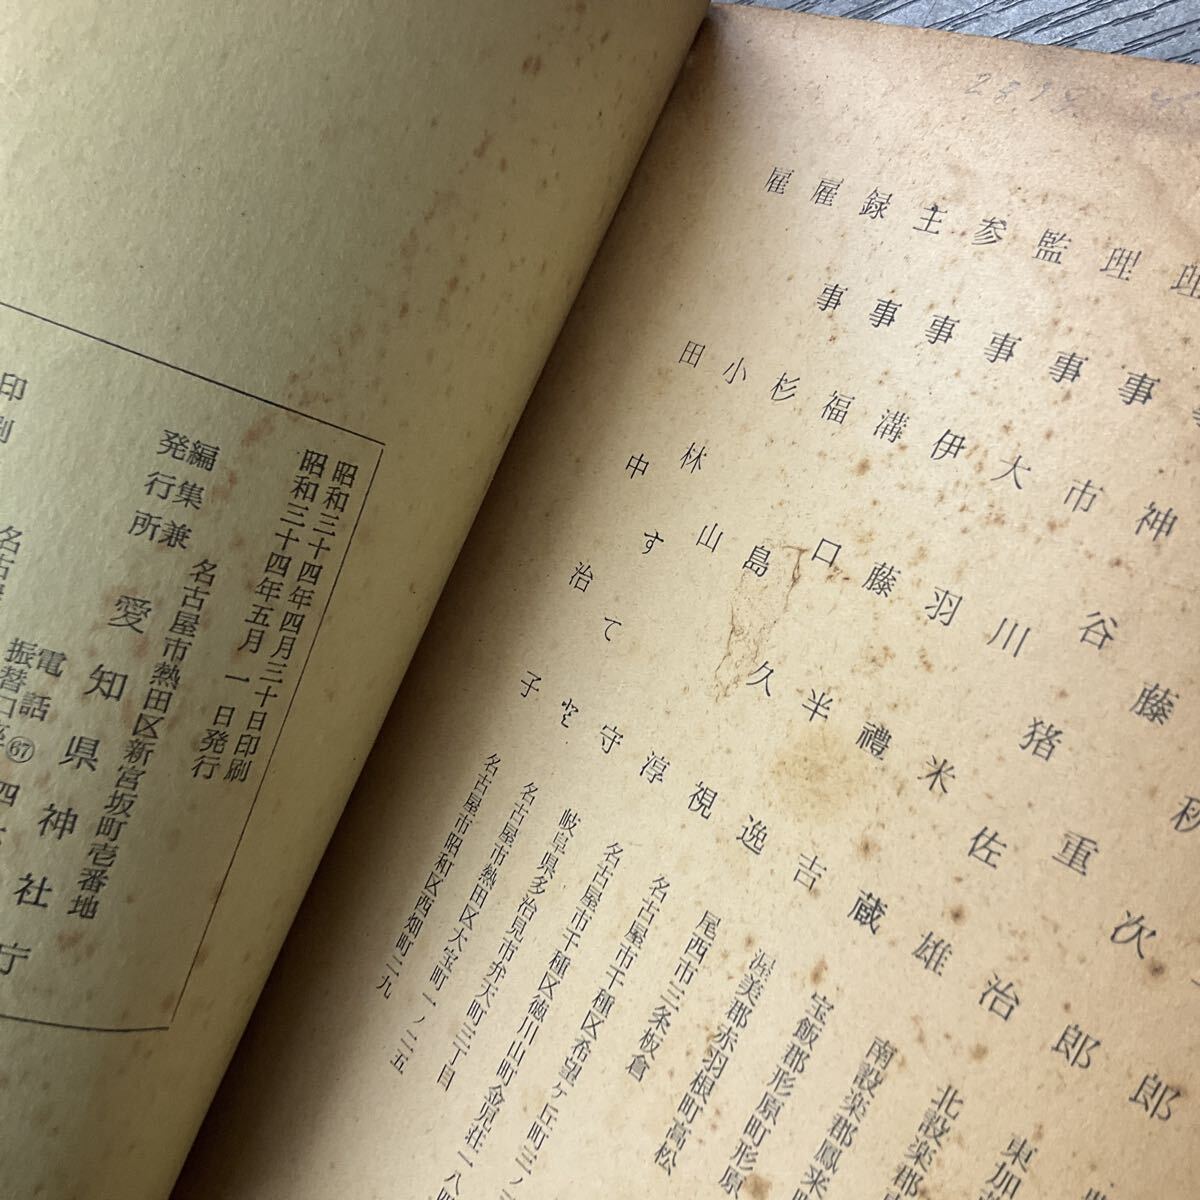 事
秋次郎 東加
藤重治郎 北設楽郡
事神谷猪佐雄 南設楽郡鳳来町
理事市川米蔵 宝飯郡形原町形原
理事大羽禮吉 渥美郡赤羽根町高松
監事伊藤半逸 尾西市三条板倉
参事溝口久視 名古屋市千種区希望ヶ丘町三ノ
主事福島淳 名古屋市千種区徳川山町金児荘一八
録事杉山守 岐阜県多治見市弁天町三丁目
雇小林すてと 名古屋市熱田区大宝町一ノ二五
雇田中治子 名古屋市昭和区西畑町二九
昭和三十四年四月三十日印刷
昭和三十四年五月一日発行
編集兼発行所
名古屋市熱田区新宮坂町壱番地
愛知県神社庁
電話 67 四
振替口座
印刷
名古